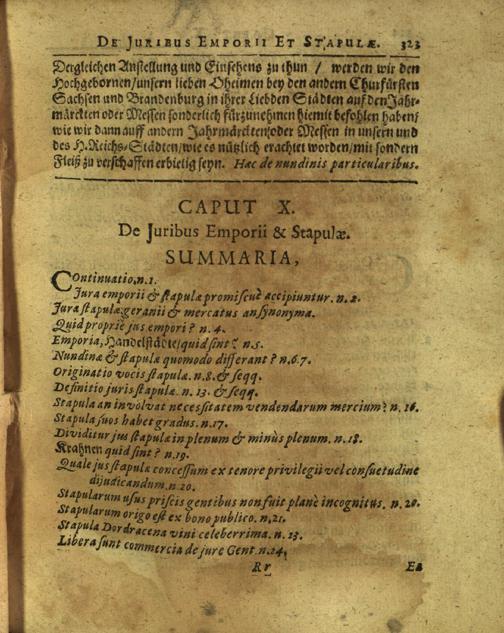 DE JURIBUS EMPORII ET STAPULÆ. 323
Dergleichen Anstellung und Einsehens zu thun / werden wir den
Hochgebornen/unsern lieben Oheimen bey den andern Churfürsten
Sachsen und Brandenburg in ihrer Liebden Städten auf den Jahr-
märckten oder Messen sonderlich fürzunehmen hiemit befohlen haben/
wie wir dann auff andern Jahrmärckten/oder Messen in unsern und
des H. Reichs-Städten/wie es nützlich erachtet worden/mit sondern
Fleiß zu verschaffen erbietig seyn. Hæc de nundinis particularibus.
CAPUT X.
De Juribus Emporii & Stapulæ.
SUMMARIA,
COntinuatio, n. 1.
Jura emporii & stapulæ promiscuè accipiuntur. n. 2.
Jura stapulæ: geranii & mercatus an synonyma.
Quid propriè jus empori? n. 4.
Emporia, Handelstädte/quid sint? n. 5.
Nundinæ & stapulæ quomodo differant? n. 6.7.
Originatio vocis stapulæ. n. 8. & seqq.
Definitio juris stapulæ. n. 13. & seqq.
Stapula an involvat necessitatem vendendarum mercium? n. 16.
Stapula suos habet gradus. n. 17.
Dividitur jus stapulæ in plenum & minùs plenum. n. 18.
Krahnen quid sint? n. 19.
Quale jus stapulæ concessum ex tenore privilegii vel consuetudine
dijudicandum. n. 20.
Stapularum usus priscis gentibus non fuit planè incognitus. n. 20.
Stapularum origo est ex bono publico. n. 21.
Stapula Dordracena vini celeberrima. n. 13.
Libera sunt commercia de jure Gent. n. 24.
Rr